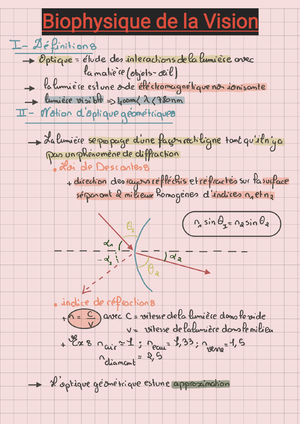 Biophysique de la Vision
I- Définitions
→ Optique = étude des interactions de la lumière avec
la matière (objets - œil)
→ la lumière est une onde électromagnétique non ionisante
→ lumière visible ⇒ 400nm < λ < 780nm
II- Notion d'optique géométriques
→ La lumière se propage d'une façon rectiligne tant qu'il n'y a
pas un phénomène de diffraction
• Loi de Descartes
+ direction des rayons réfléchis et réfractés sur la surface
séparant 2 milieux homogènes d'indices n1 et n2
n1 sin θ1 = n2 sin θ2
θ1
α1
-α1
α2
θ2
• indice de réfraction
+ n = C/V avec C = vitesse de la lumière dans le vide
V = vitesse de la lumière dans le milieu
+ Ex : n air ≈ 1 ; n eau = 1,33 ; n verre = 1,5
n diamant = 2,5
→ L'optique géométrique est une approximation